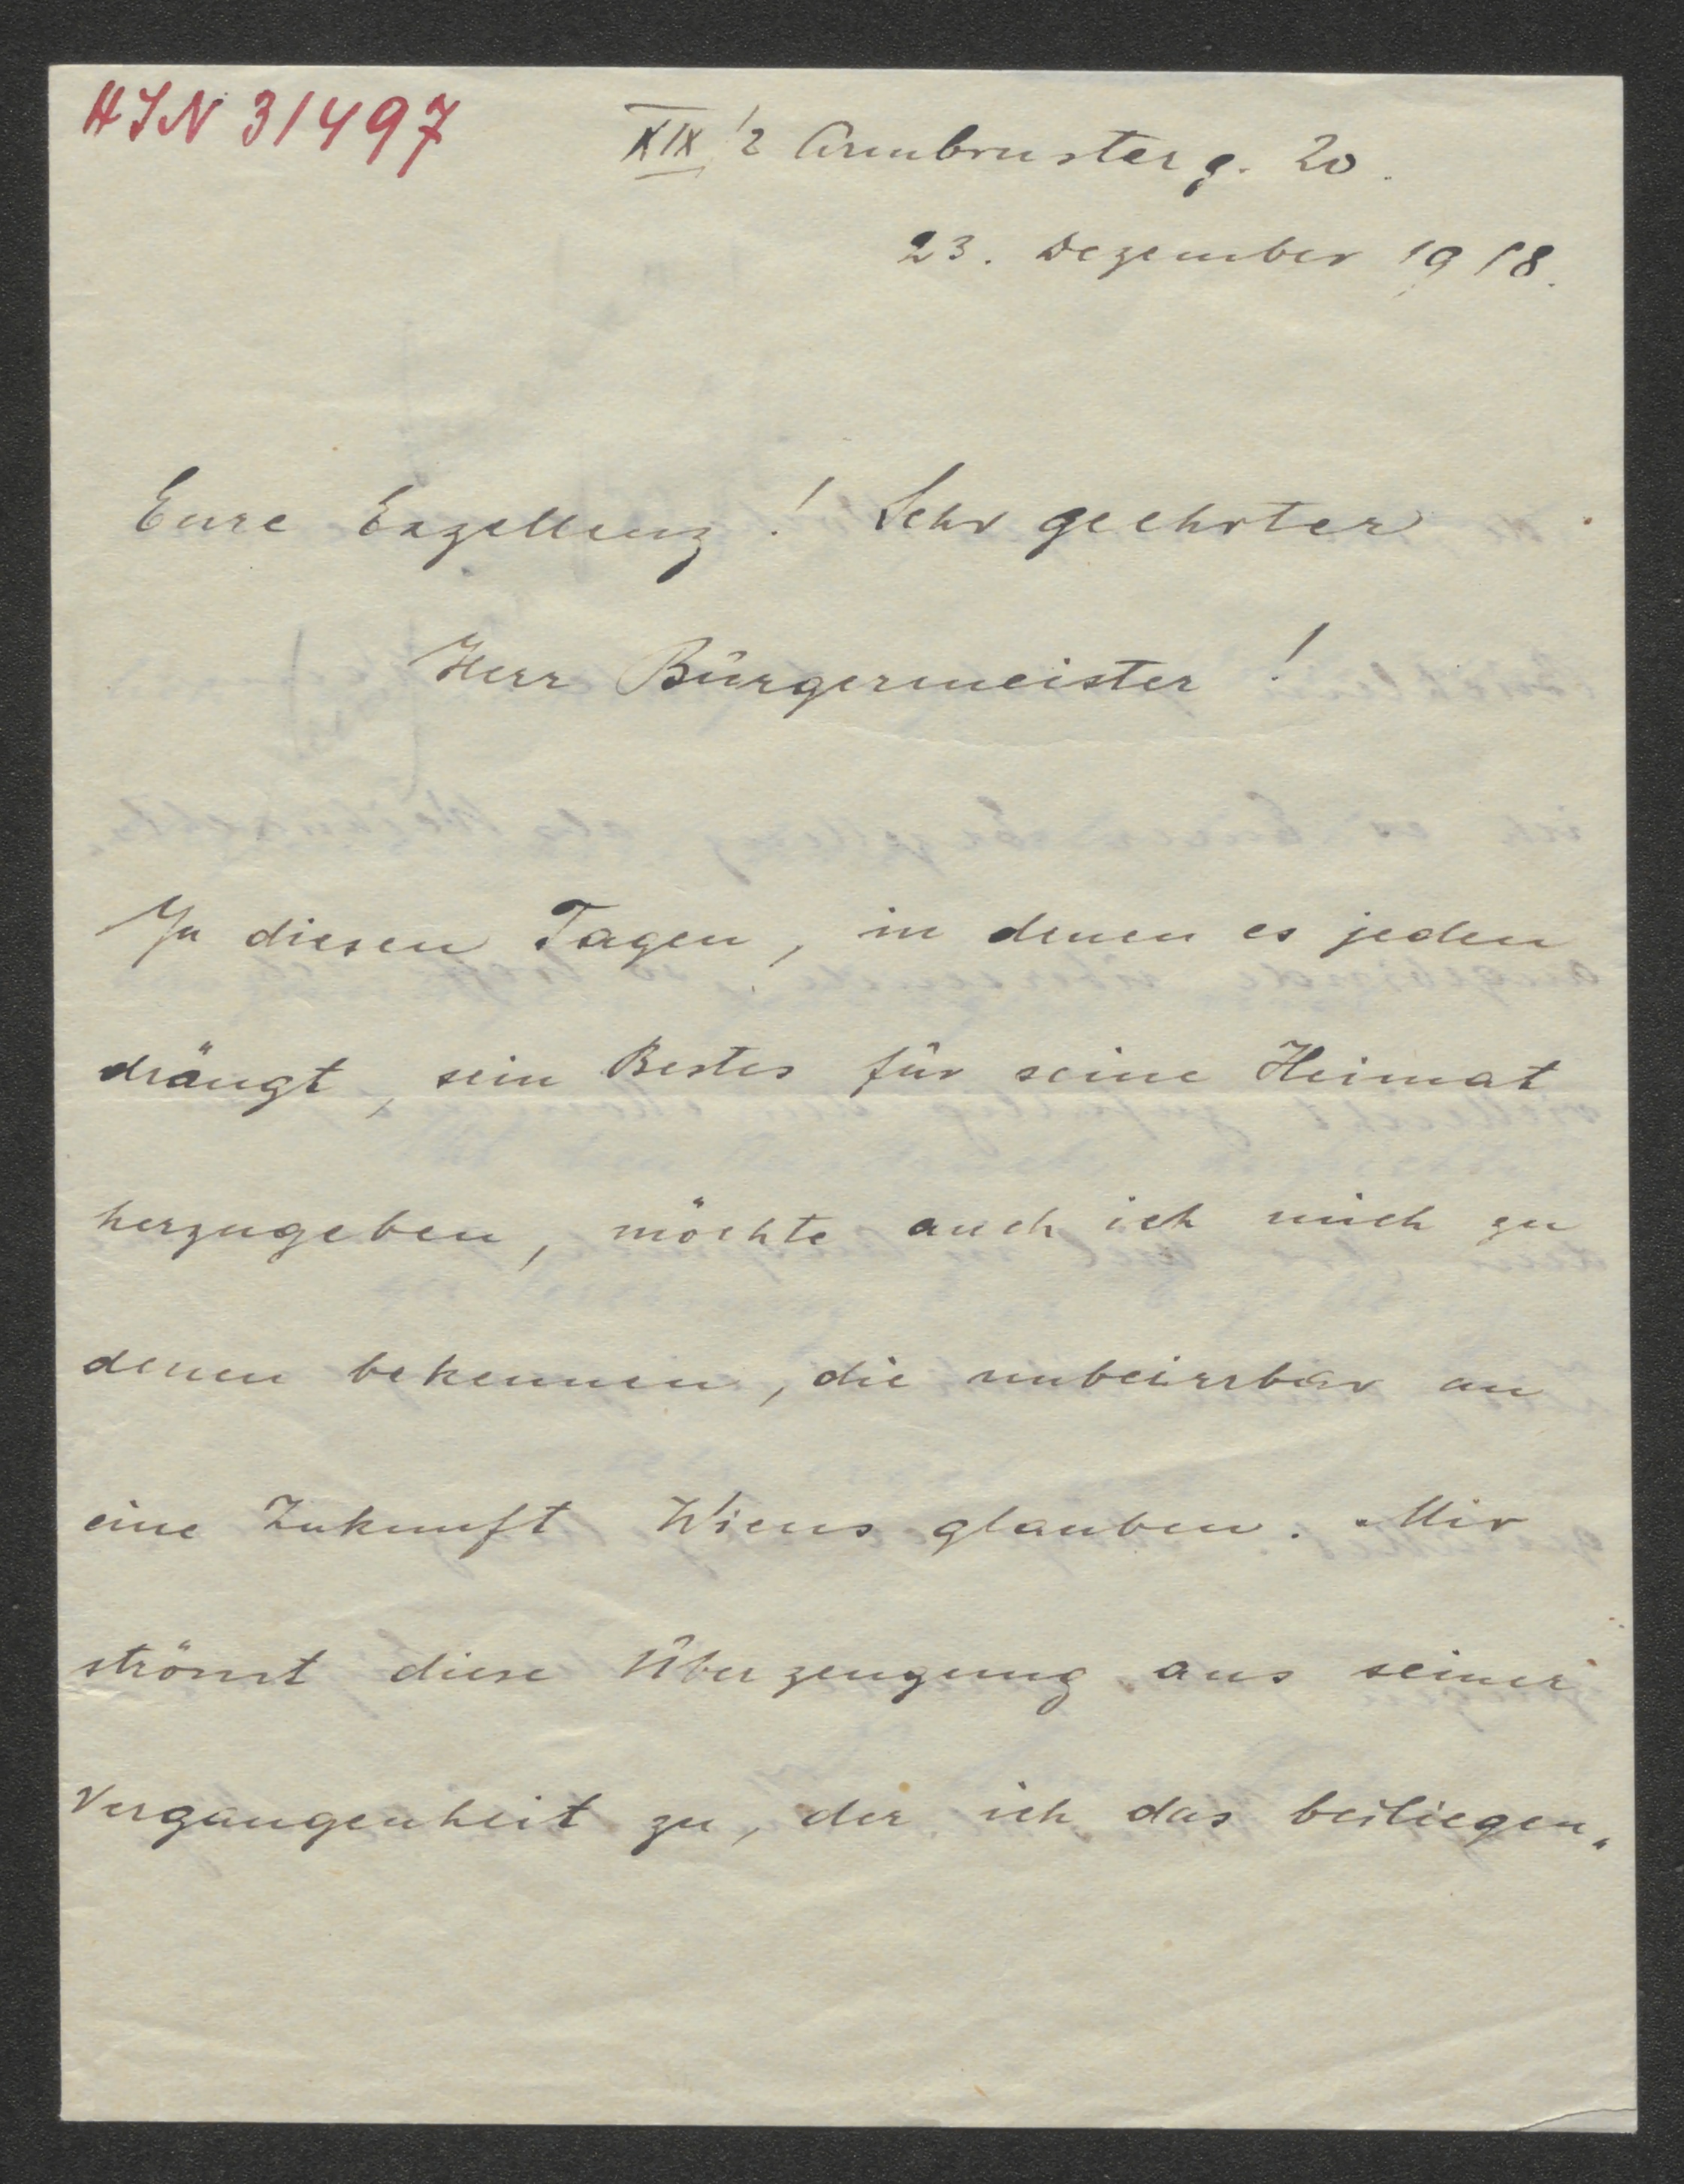 HIN 31497
XIX/2 Armbrusterg. 20.
23. Dezember 1918.
Eure Exzellenz! Sehr geehrter
Herr Bürgermeister!
In diesen Tagen, in denen es jeden
drängt, sein Bestes für seine Heimat
herzugeben, möchte auch ich mich zu
denen bekennen, die unbeirrbar an
eine Zukunft Wiens glauben. Mir
strömt diese Überzeugung aus seiner
Vergangenheit zu, der ich das beiliegen-